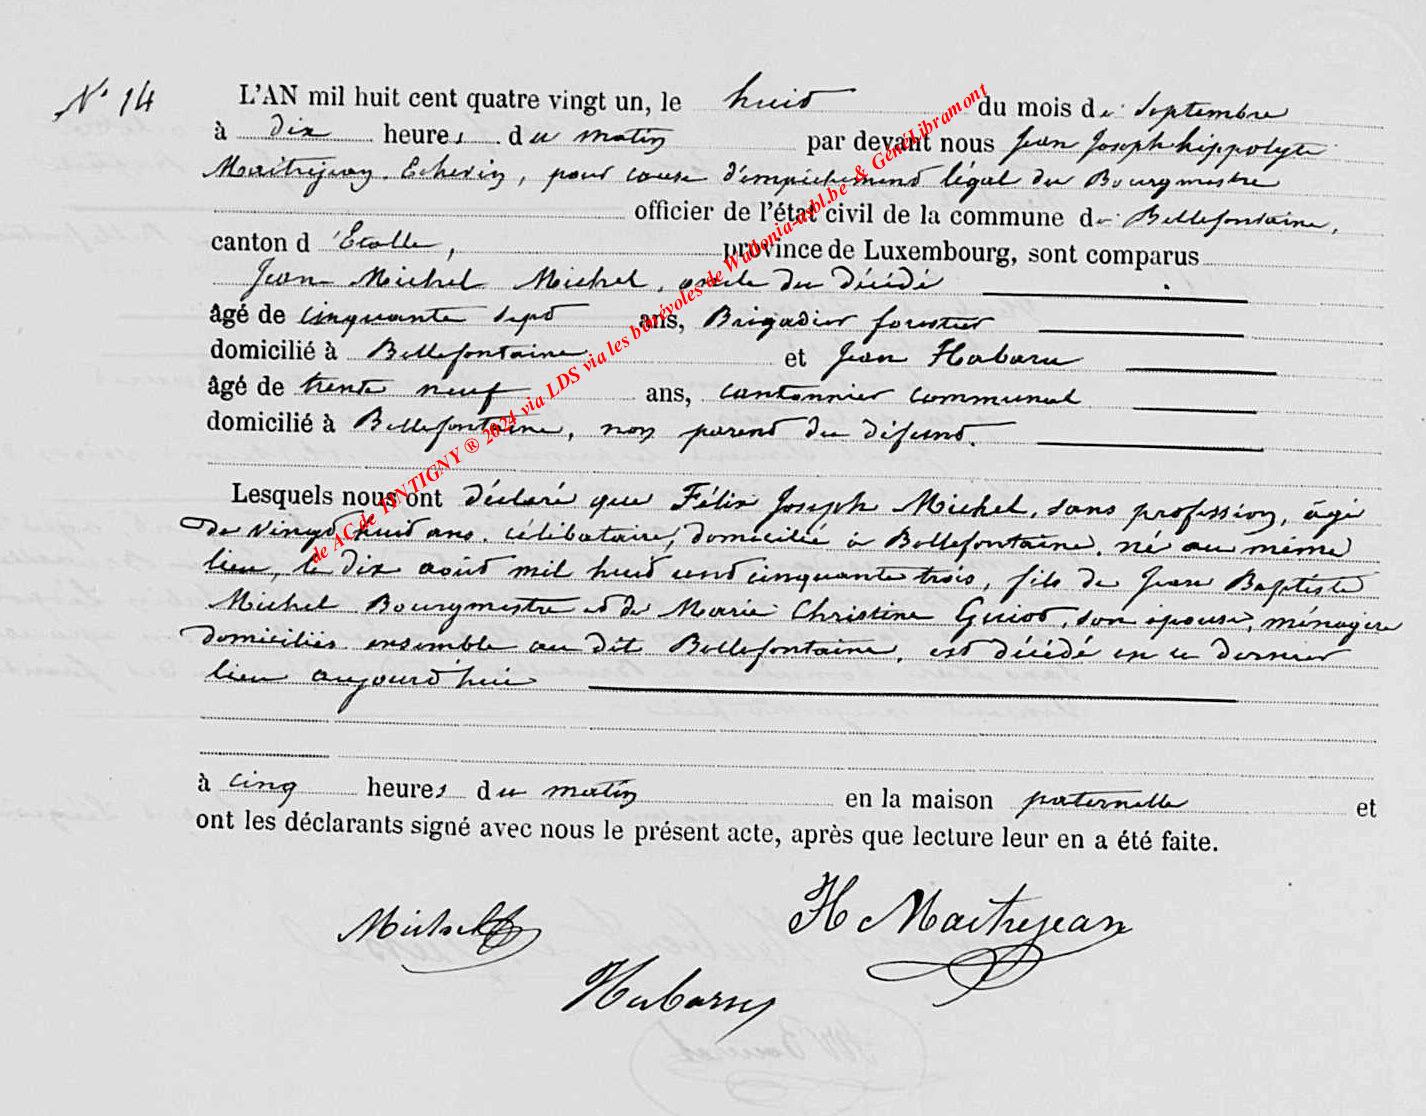 N° 14
L'AN mil huit cent quatre vingt un, le huit du mois de Septembre
à dix heures du matin par devant nous Jean Joseph hippolyte
Maitrejean Echevin, pour cause d'empêchement légal du Bourgmestre
officier de l'état civil de la commune de Bellefontaine,
canton d'Etalle, province de Luxembourg, sont comparus
Jean Michel Michel, oncle du décédé
âgé de cinquante sept ans, Brigadier forestier
domicilié à Bellefontaine et Jean Habaru
âgé de trente neuf ans, cantonnier communal
domicilié à Bellefontaine, non parent du défunt.
Lesquels nous ont déclaré que Félix Joseph Michel, sans profession, âgé
de vingt huit ans, célibataire, domicilié à Bellefontaine, né au même
lieu, le dix août mil huit cent cinquante trois, fils de Jean Baptiste
Michel Bourgmestre et de Marie Christine Guiot, son épouse, ménagère
domiciliés ensemble au dit Bellefontaine, est décédé en ce dernier
lieu aujourd'hui
à cinq heures du matin en la maison paternelle et
ont les déclarants signé avec nous le présent acte, après que lecture leur en a été faite.
Michel
H Maitrejean
Habaru
de AC de TINTIGNY ® 2024 via LDS via les bénévoles de Wallonia-asbl.be & GenéLibramont